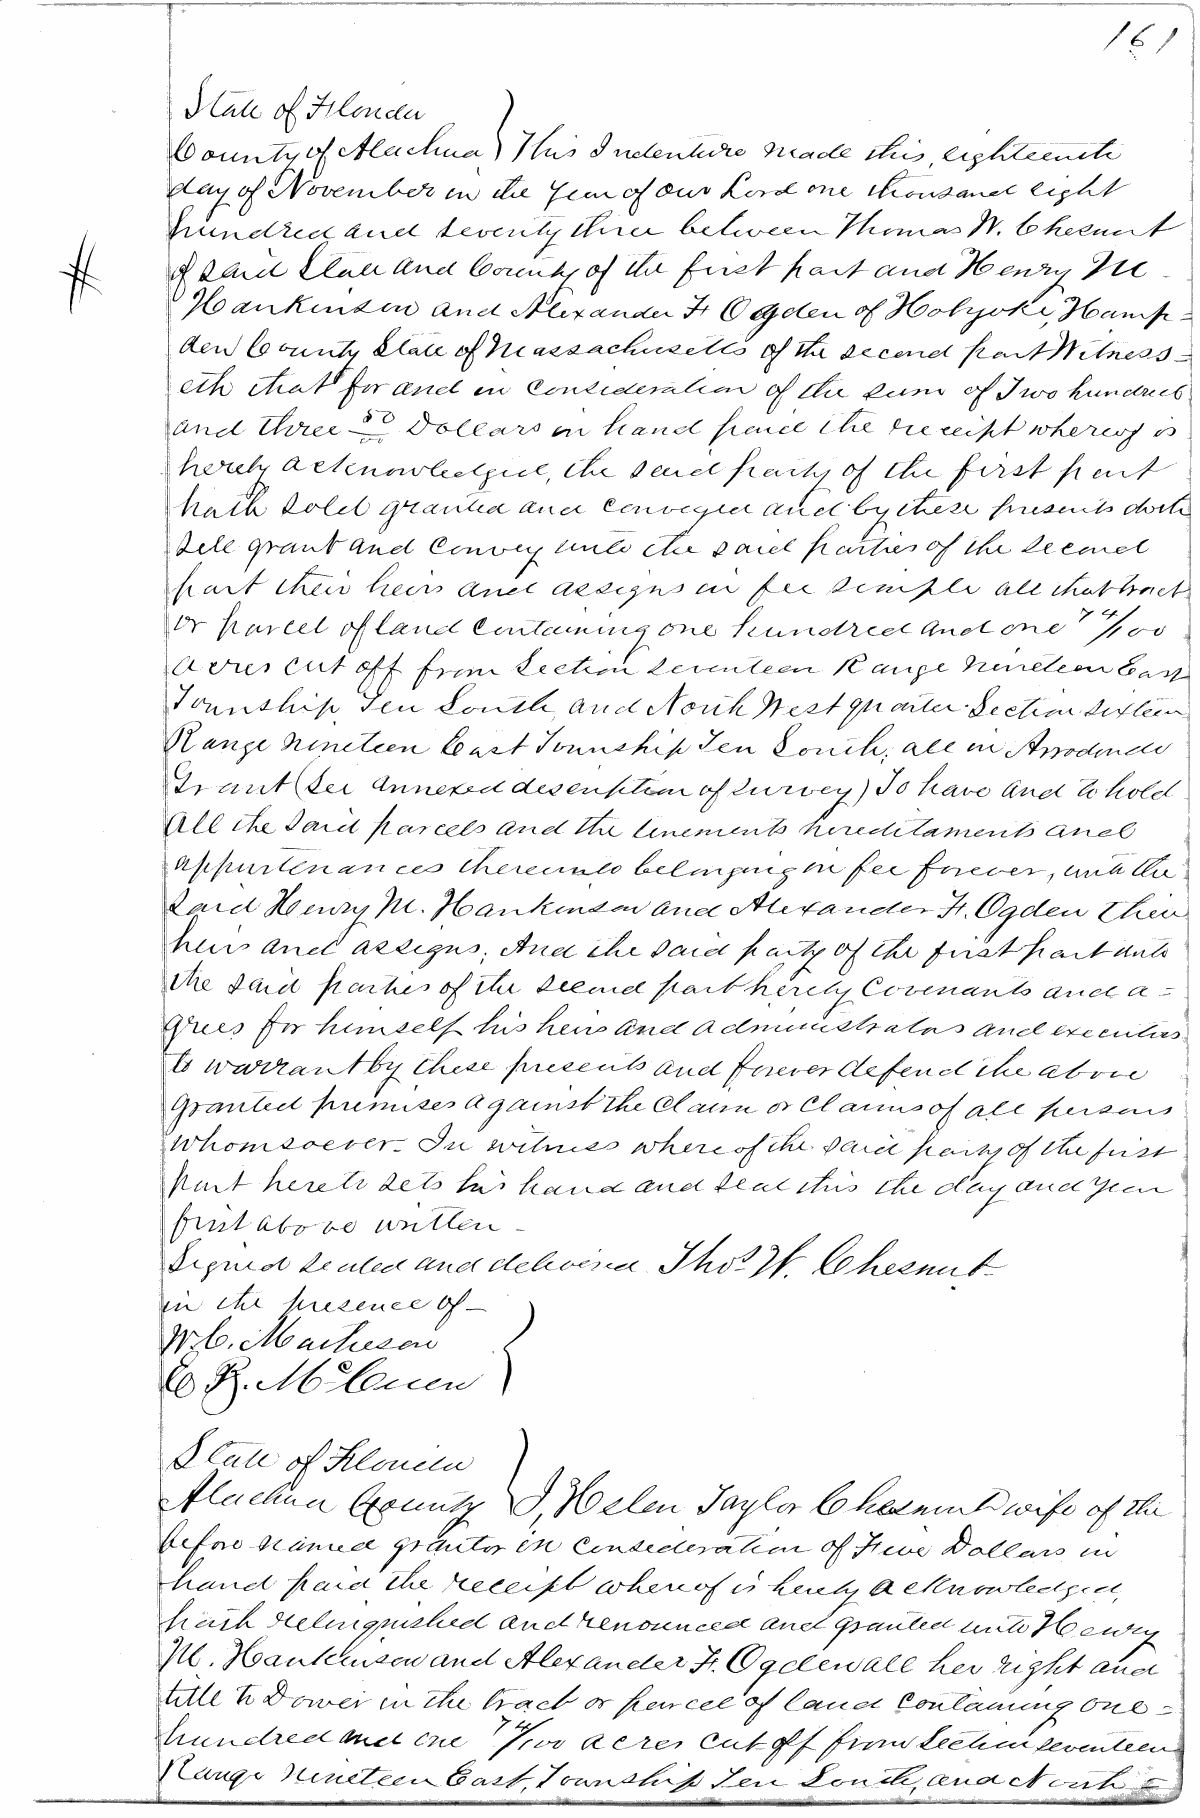 161
State of Florida
County of Alachua } This Indenture made this, eighteenth
day of November in the Year of our Lord one thousand eight
hundred and seventy three between Thomas W. Chesnut
of said State and County of the first part and Henry M
#
Hankinson and Alexander F. Ogden of Holyoke, Hamp-
den County State of Massachusetts of the second part Witness-
eth that for and in consideration of the sum of Two hundred
and three 50 Dollars in hand paid the receipt whereof is
hereby acknowledged, the said party of the first part
hath sold granted and conveyed and by these presents doth
sell grant and convey unto the said parties of the second
part their heirs and assigns in fee simple all that tract
or parcel of land containing one hundred and one 74/100
acres cut off from Section seventeen Range nineteen East
Township Ten South, and North West quarter Section sixteen
Range nineteen East Township Ten South, all in Arredondo
Grant (See annexed description of survey) To have and to hold
all the said parcels and the tenements hereditaments and
appurtenances thereunto belonging in fee forever, unto the
said Henry M. Hankinson and Alexander F. Ogden their
heirs and assigns. And the said party of the first part unto
the said parties of the second part hereby Covenants and a-
grees for himself his heirs and administrators and executors
to warrant by these presents and forever defend the above
granted premises against the claim or claims of all persons
whomsoever- In witness whereof the said party of the first
part hereto sets his hand and seal this the day and year
first above written-
Signed sealed and delivered Thos. W. Chesnut
in the presence of-
W. C. Matheson
E R. McCuen
State of Florida
Alachua County } I, Helen Taylor Chesnut wife of the
before named grantor in consideration of Five Dollars in
hand paid the receipt whereof is hereby acknowledged,
hath relinquished and renounced and granted unto Henry
M. Hankinson and Alexander F. Ogden all her right and
title to Dower in the tract or parcel of land containing one-
hundred and one 74/100 acres cut off from Section seventeen
Range nineteen East, Township Ten South, and North-